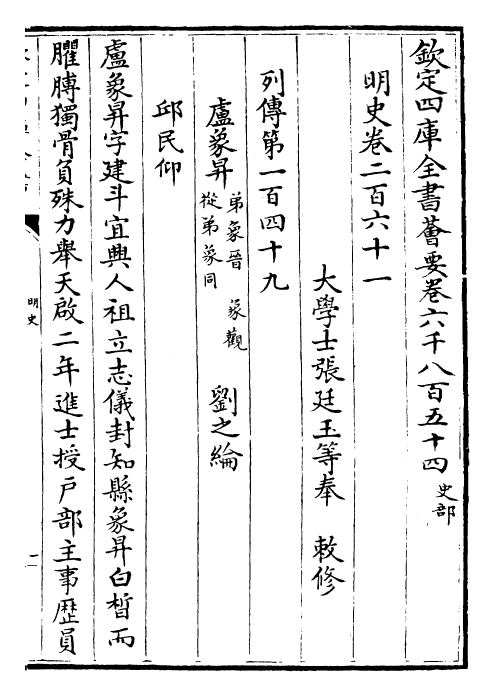 欽定四庫全書薈要卷六千八百五十四 史部
明史卷二百六十一
大學士張廷玉等奉 敕修
列傳第一百四十九
盧象昇 弟象晉 象觀 從弟象同 劉之綸
邱民仰
盧象昇字建斗宜興人祖立志儀封知縣象昇白晳而
臞膊獨骨負殊力舉天啟二年進士授戶部主事歴員
明史